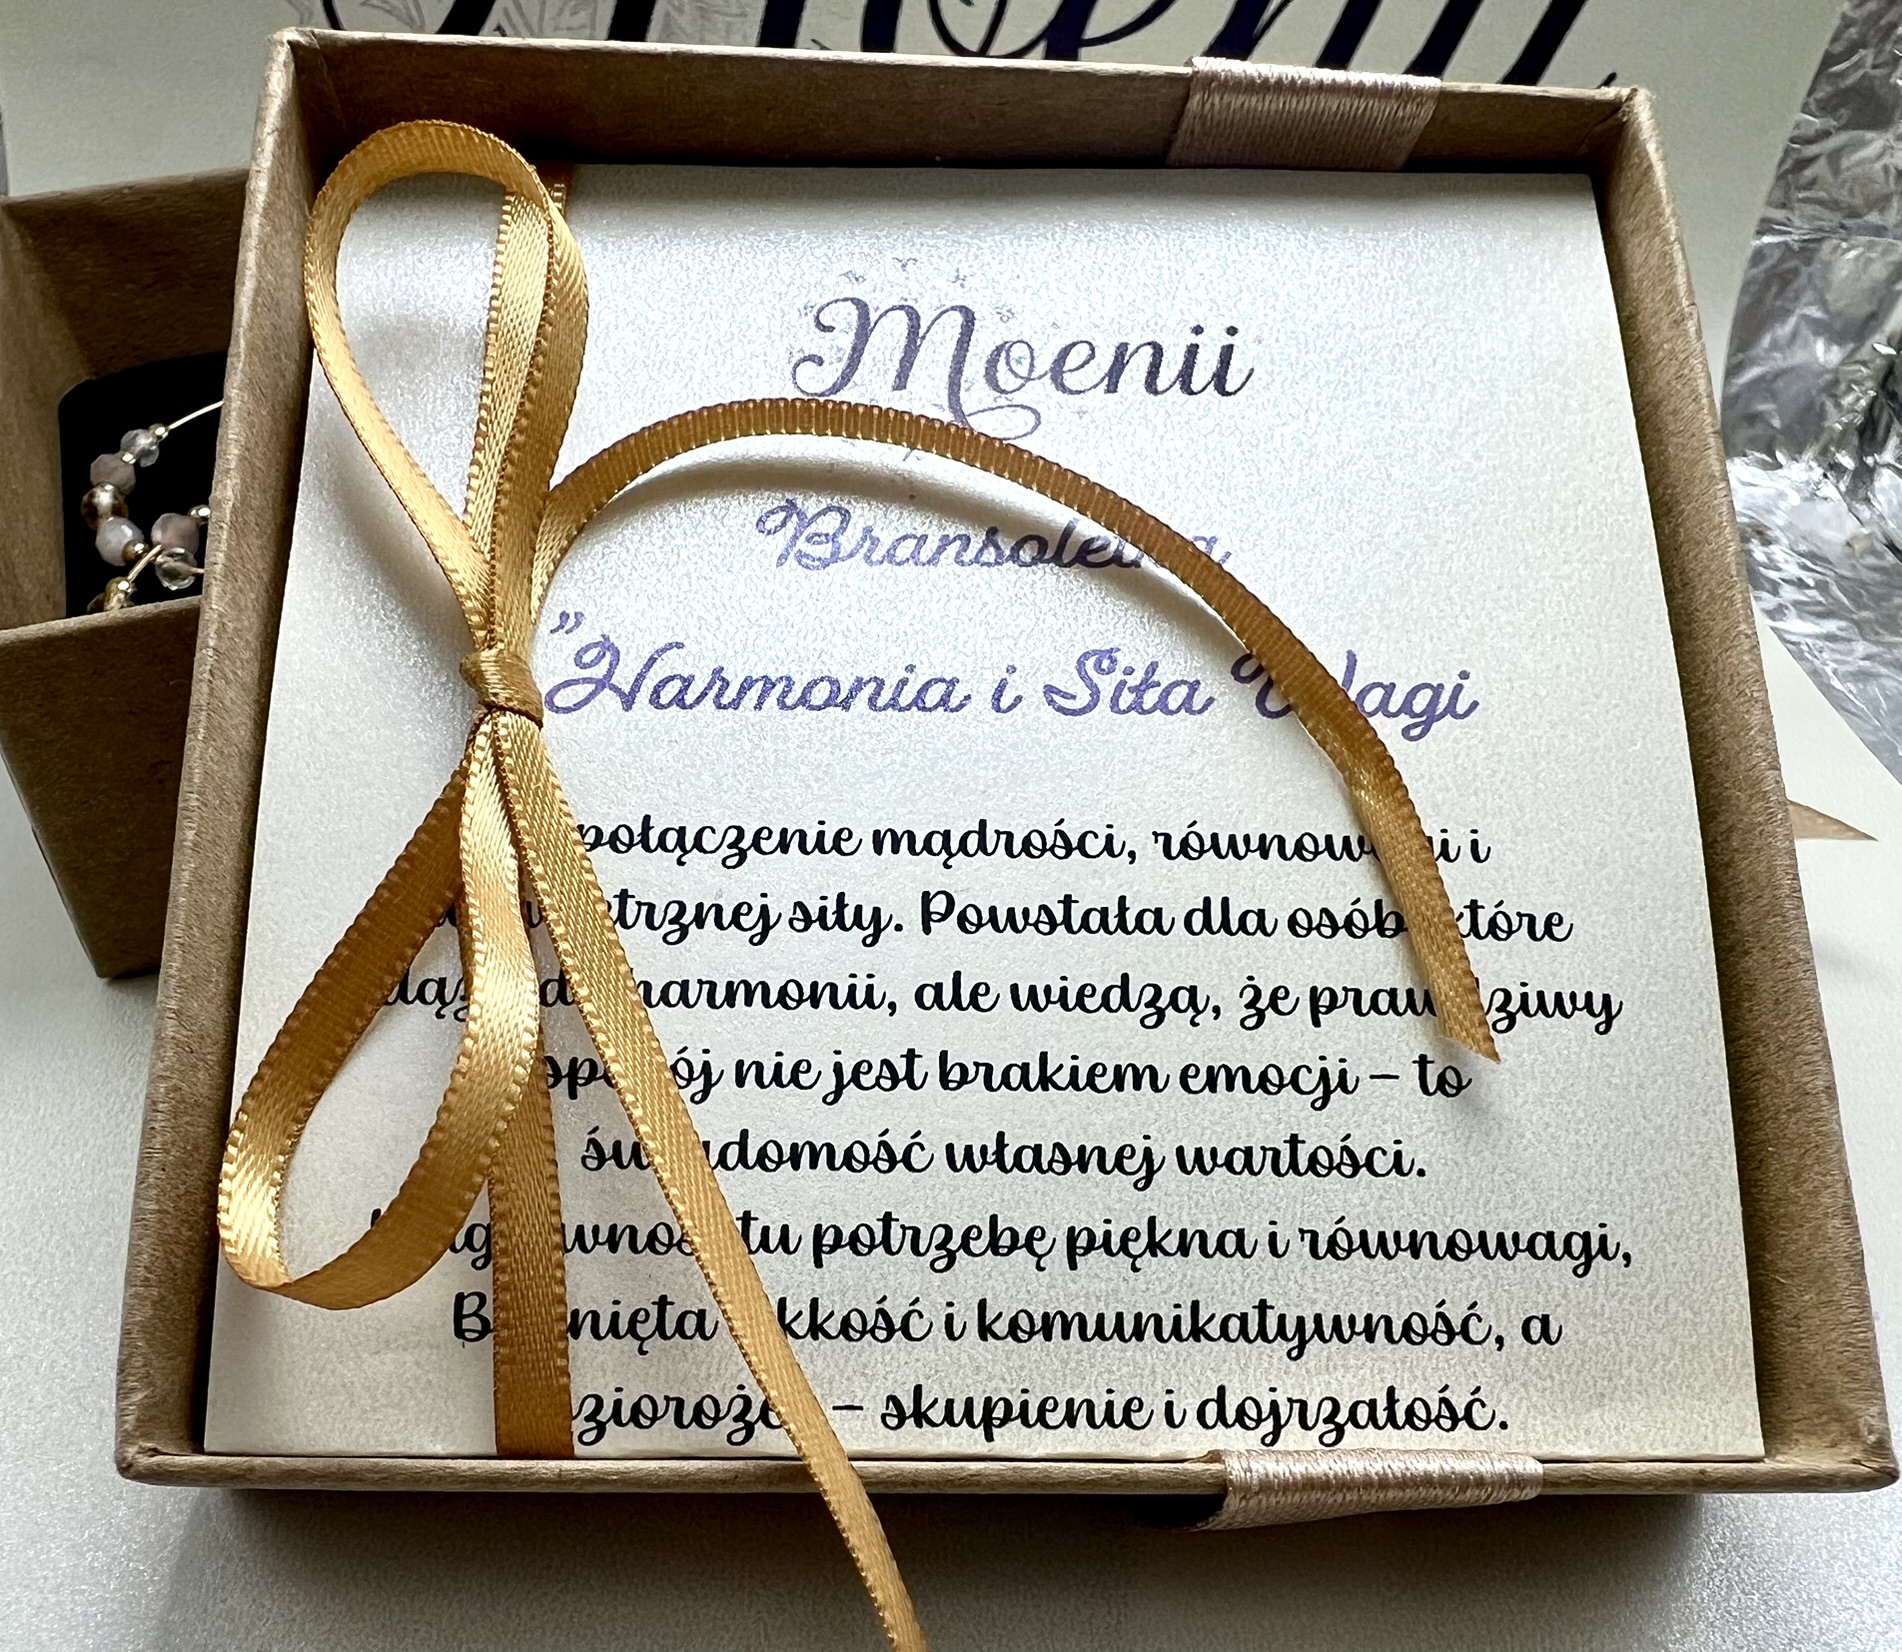 Moenii
Bransoletka
"Harmonia i Siła Wagi
połączenie mądrości, równowagi i
siły. Powstała dla osób, które
harmonii, ale wiedzą, że prawdziwy
spokój nie jest brakiem emocji – to
świadomość własnej wartości.
tu potrzebę piękna i równowagi,
i komunikatywność, a
– skupienie i dojrzałość.